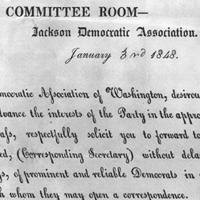 COMMITTEE ROOM—
Jackson Democratic Association.
January 3rd 1848.
mocratic Association of Washington, desirou
vance the interests of the Party in the appro
ass, respectfully solicit you to forward to
ed, (Corresponding Secretary) without dela
s, of prominent and reliable Democrats in
h whom they may open a correspondence.